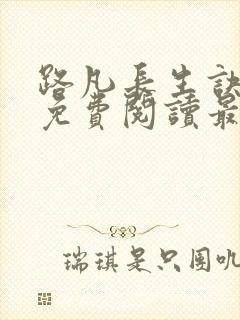 路凡長生訣
免費閱讀最
瑞琪是只圈叽